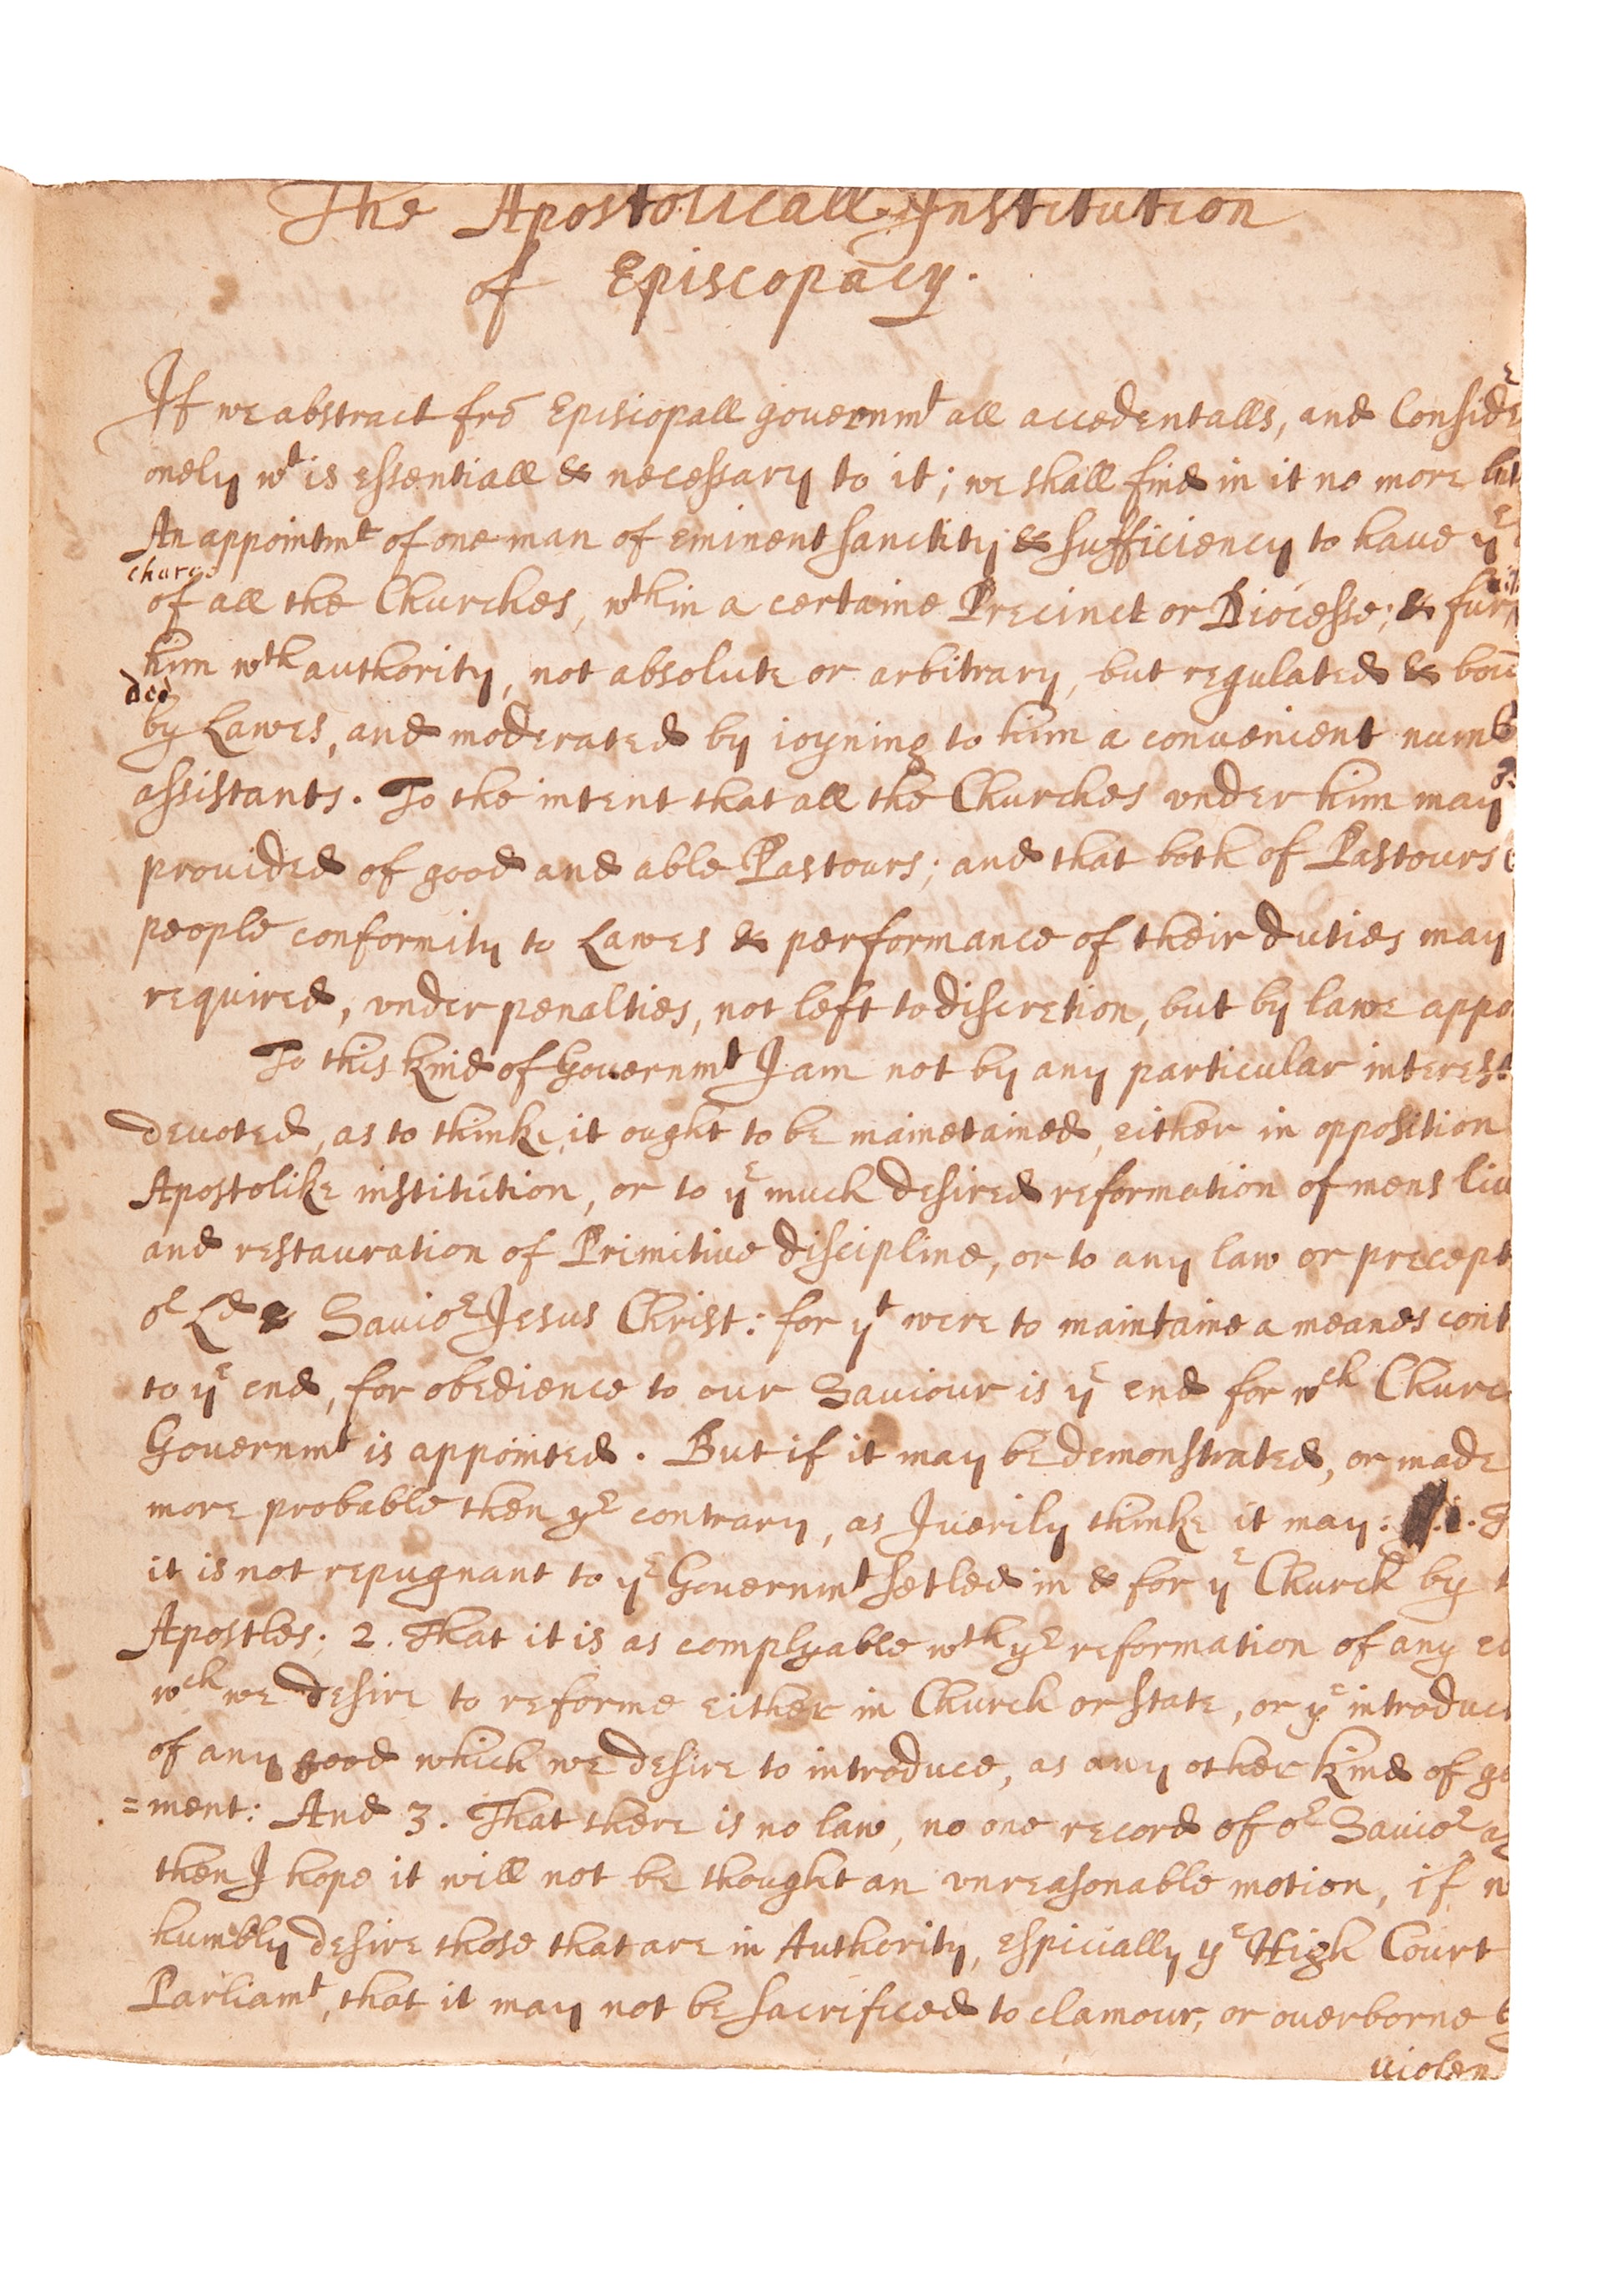 The Apostolicall Institution
of Episcopacy.
If we abstract frō Episcopall governmt all accedentalls, and Conside
onely wt is essentiall & necessary to it; we shall find in it no more but
An appointmt of one man of eminent sanctity & sufficiency to haue ye
charge
of all the Churches, wthin a certaine Precinct or Diocesse; & furn
him wth authority, not absolute or arbitrary, but regulated & boū
ded
by Lawes, and moderated by ioyning to him a convenient numb
assistants. To the intent that all the Churches vnder him may
prouided of good and able Pastours; and that both of Pastours &
people conformity to Lawes & performance of their duties may
required, vnder penalties, not left to discretion, but by lawe appo
To this kind of Gouernmt I am not by any particular interest
deuoted, as to thinke it ought to be mainetained, either in opposition
Apostolike institution, or to ye much desired reformation of mens liu
and restauration of Primitiue discipline, or to any law or precept
or Ld & Savior Jesus Christ: for yt were to maintaine a meanes cont
to ye end, for obedience to our Saviour is ye end for wch Churc
Gouernmt is appointed. But if it may be demonstrated, or made
more probable then ye contrary, as I verily thinke it may: 1.
it is not repugnant to ye Governmt setled in & for ye Church by
Apostles; 2. That it is as complyable wth ye reformation of any
wch we desire to reforme either in Church or state, or ye introduct
of any good which we desire to introduce, as any other kind of go
=ment: And 3. That there is no law, no one record of or Savior ag
then I hope it will not be thought an vnreasonable motion, if
humbly desire those that are in Authority, espicially ye High Court
Parliamt, that it may not be sacrificed to clamour, or ouerborne by
violen